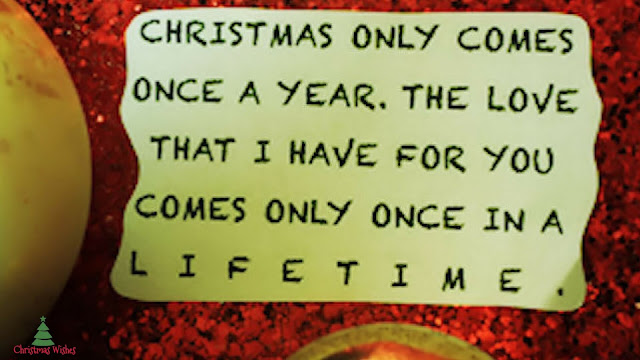 CHRISTMAS ONLY COMES
ONCE A YEAR. THE LOVE
THAT I HAVE FOR YOU
COMES ONLY ONCE IN A
LIFETIME.
Christmas Wishes